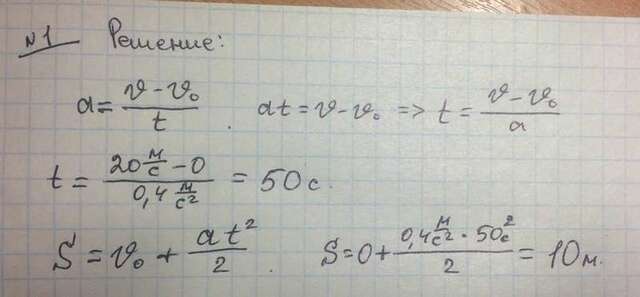 №1 Решение:
a = (v - v₀)/t . at = v - v₀ => t = (v - v₀)/a
t = (20 м/с - 0)/(0,4 м/с²) = 50 с.
S = v₀ + at²/2 S = 0 + (0,4 м/с² · 50с²)/2 = 10 м.